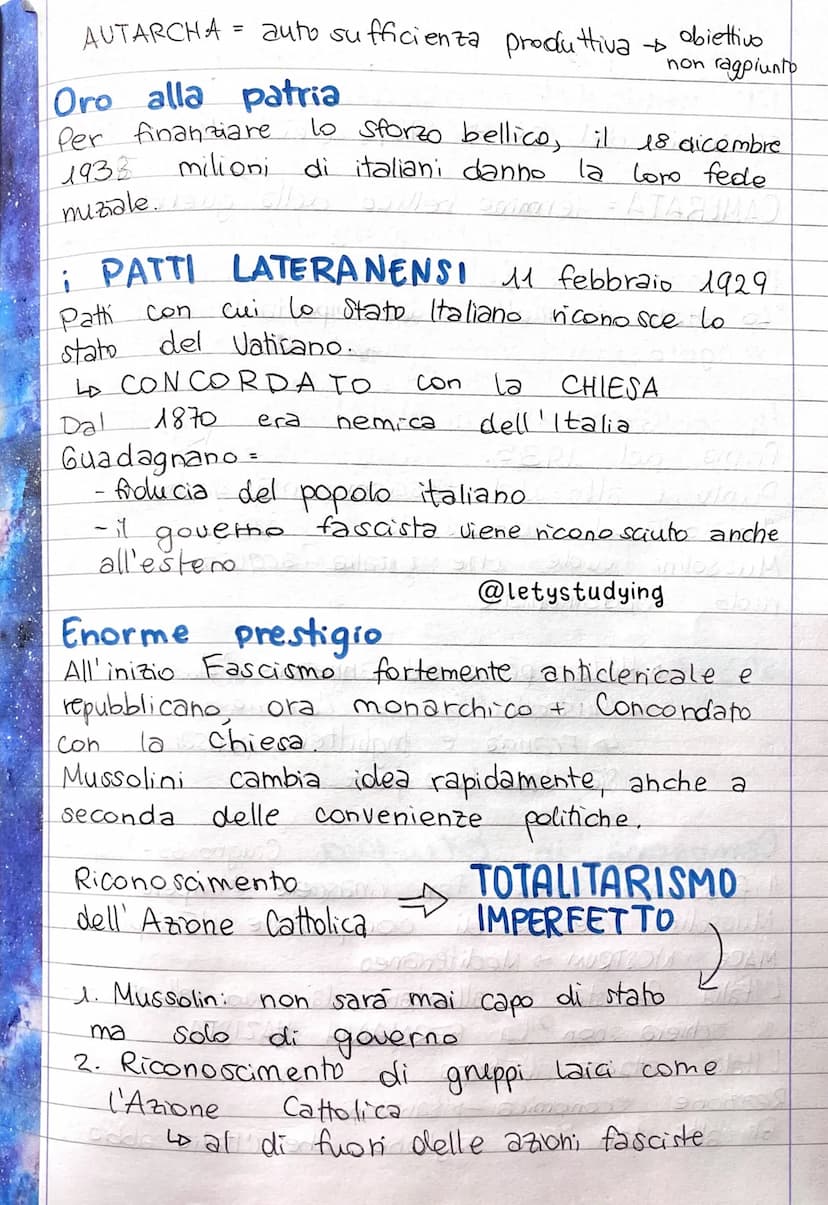 AUTARCHA = auto sufficienza produttiva → obiettivo
non raggiunto
Oro alla patria
Per finanziare lo sforzo bellico, il 18 dicembre
193 milioni di italiani danno la loro fede
nuziale.
i PATTI LATERANENSI 11 febbraio 1929
Patti con cui lo Stato Italiano riconosce lo
stato del Vaticano.
↳ CONCORDATO con la CHIESA
Dal 1870 era nemica dell'Italia
Guadagnano =
- fiducia del popolo italiano
- il governo fascista viene riconosciuto anche
all'estero
@letystudying
Enorme prestigio
All'inizio Fascismo fortemente anticlericale e
repubblicano, ora monarchico + Concordato
con la Chiesa.
Mussolini cambia idea rapidamente, anche a
seconda delle convenienze politiche.
Riconoscimento
dell'Azione Cattolica ⇒ TOTALITARISMO
IMPERFETTO
1. Mussolini non sarà mai capo di stato
ma solo di governo
2. Riconoscimento di gruppi laici come
l'Azione Cattolica
↳ al di fuori delle azioni fasciste